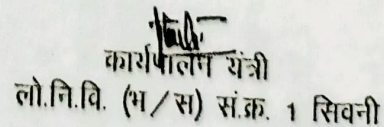 कार्यपालन यंत्री
लो.नि.वि. (भ/स) सं.क्र. 1 सिवनी